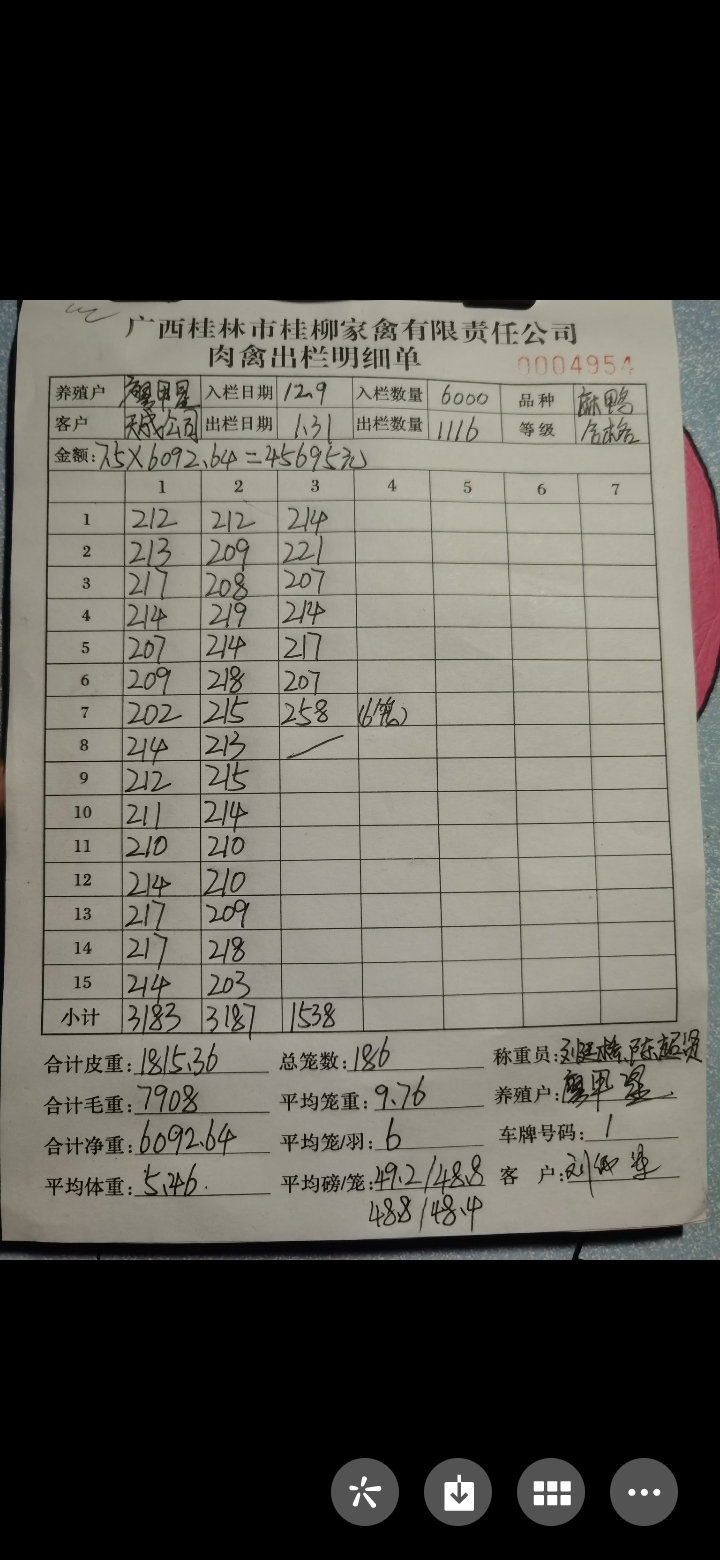 广西桂林市桂柳家禽有限责任公司
肉禽出栏明细单 0004954
养殖户 入栏日期 12.9 入栏数量 6000 品种 麻鸭
客户 天成公司 出栏日期 1.31 出栏数量 1116 等级 合格
金额:7.5×6092.64=45695元
1 2 3 4 5 6 7
1 212 212 214
2 213 209 221
3 217 208 207
4 214 219 214
5 207 214 217
6 209 218 207
7 202 215 258 (6笼)
8 214 213
9 212 215
10 211 214
11 210 210
12 214 210
13 217 209
14 217 218
15 214 203
小计 3183 3187 1538
合计皮重:1815.36 总笼数:186 称重员:
合计毛重:7908 平均笼重:9.76 养殖户:
合计净重:6092.64 平均笼/羽:6 车牌号码:1
平均体重:5.46. 平均磅/笼:49.2/48.8 客户:
48.8/48.4